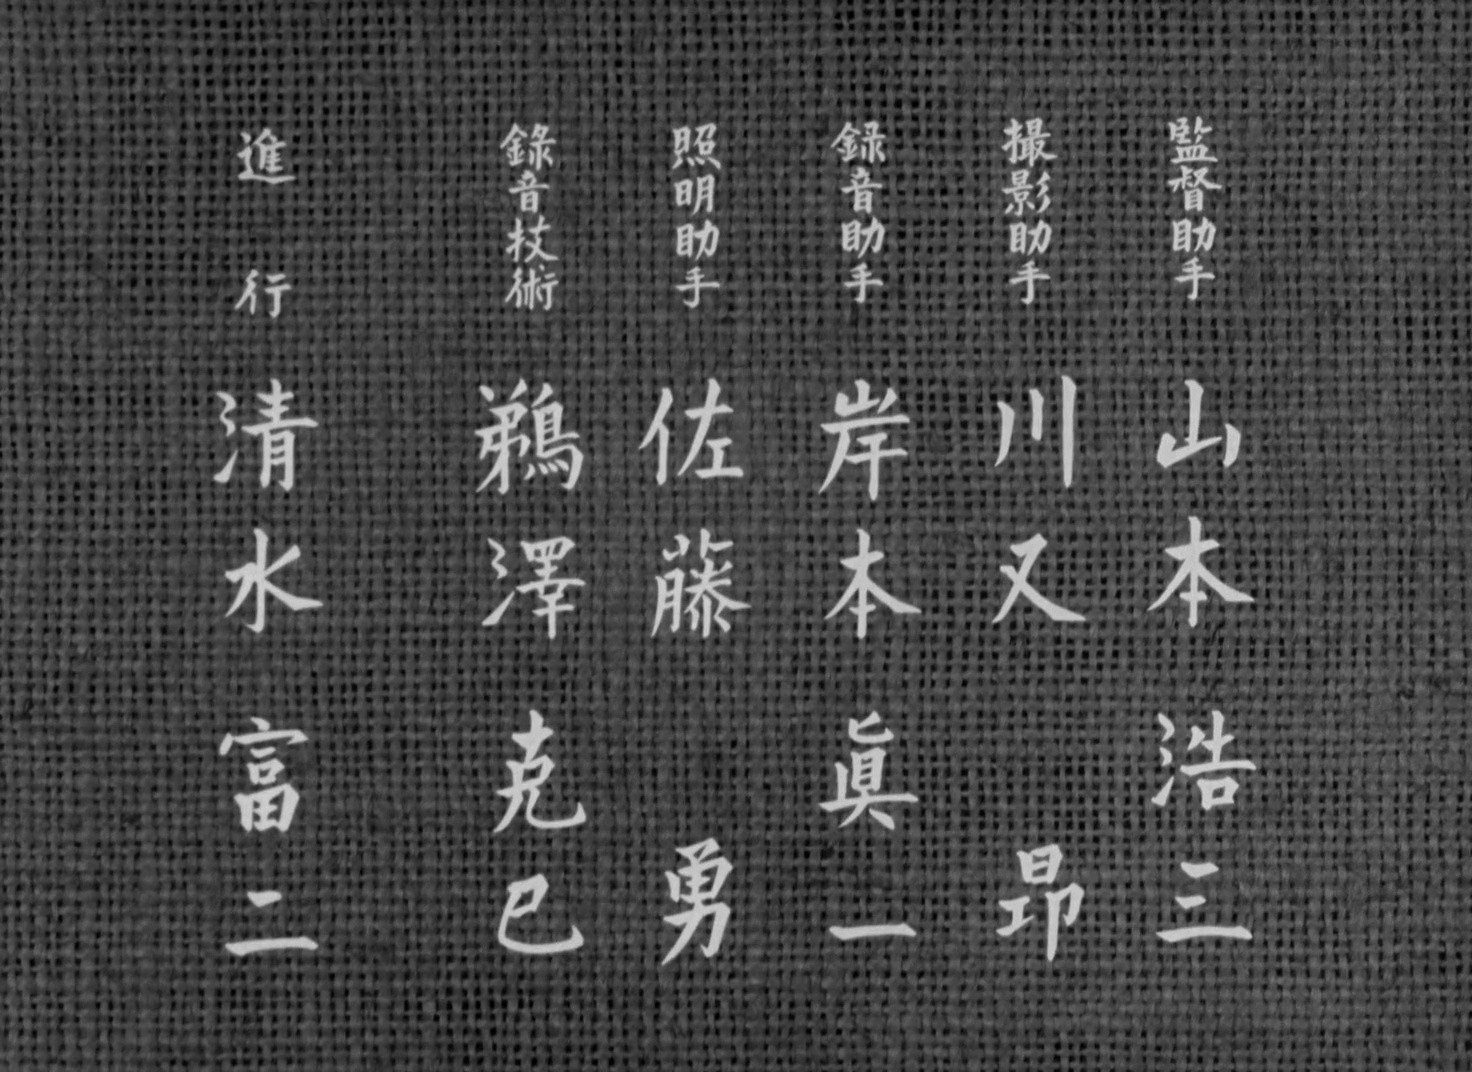 監督助手 山本浩三
撮影助手 川又昻
録音助手 岸本眞一
照明助手 佐藤勇
錄音技術 鵜澤克巳
進行 清水富二